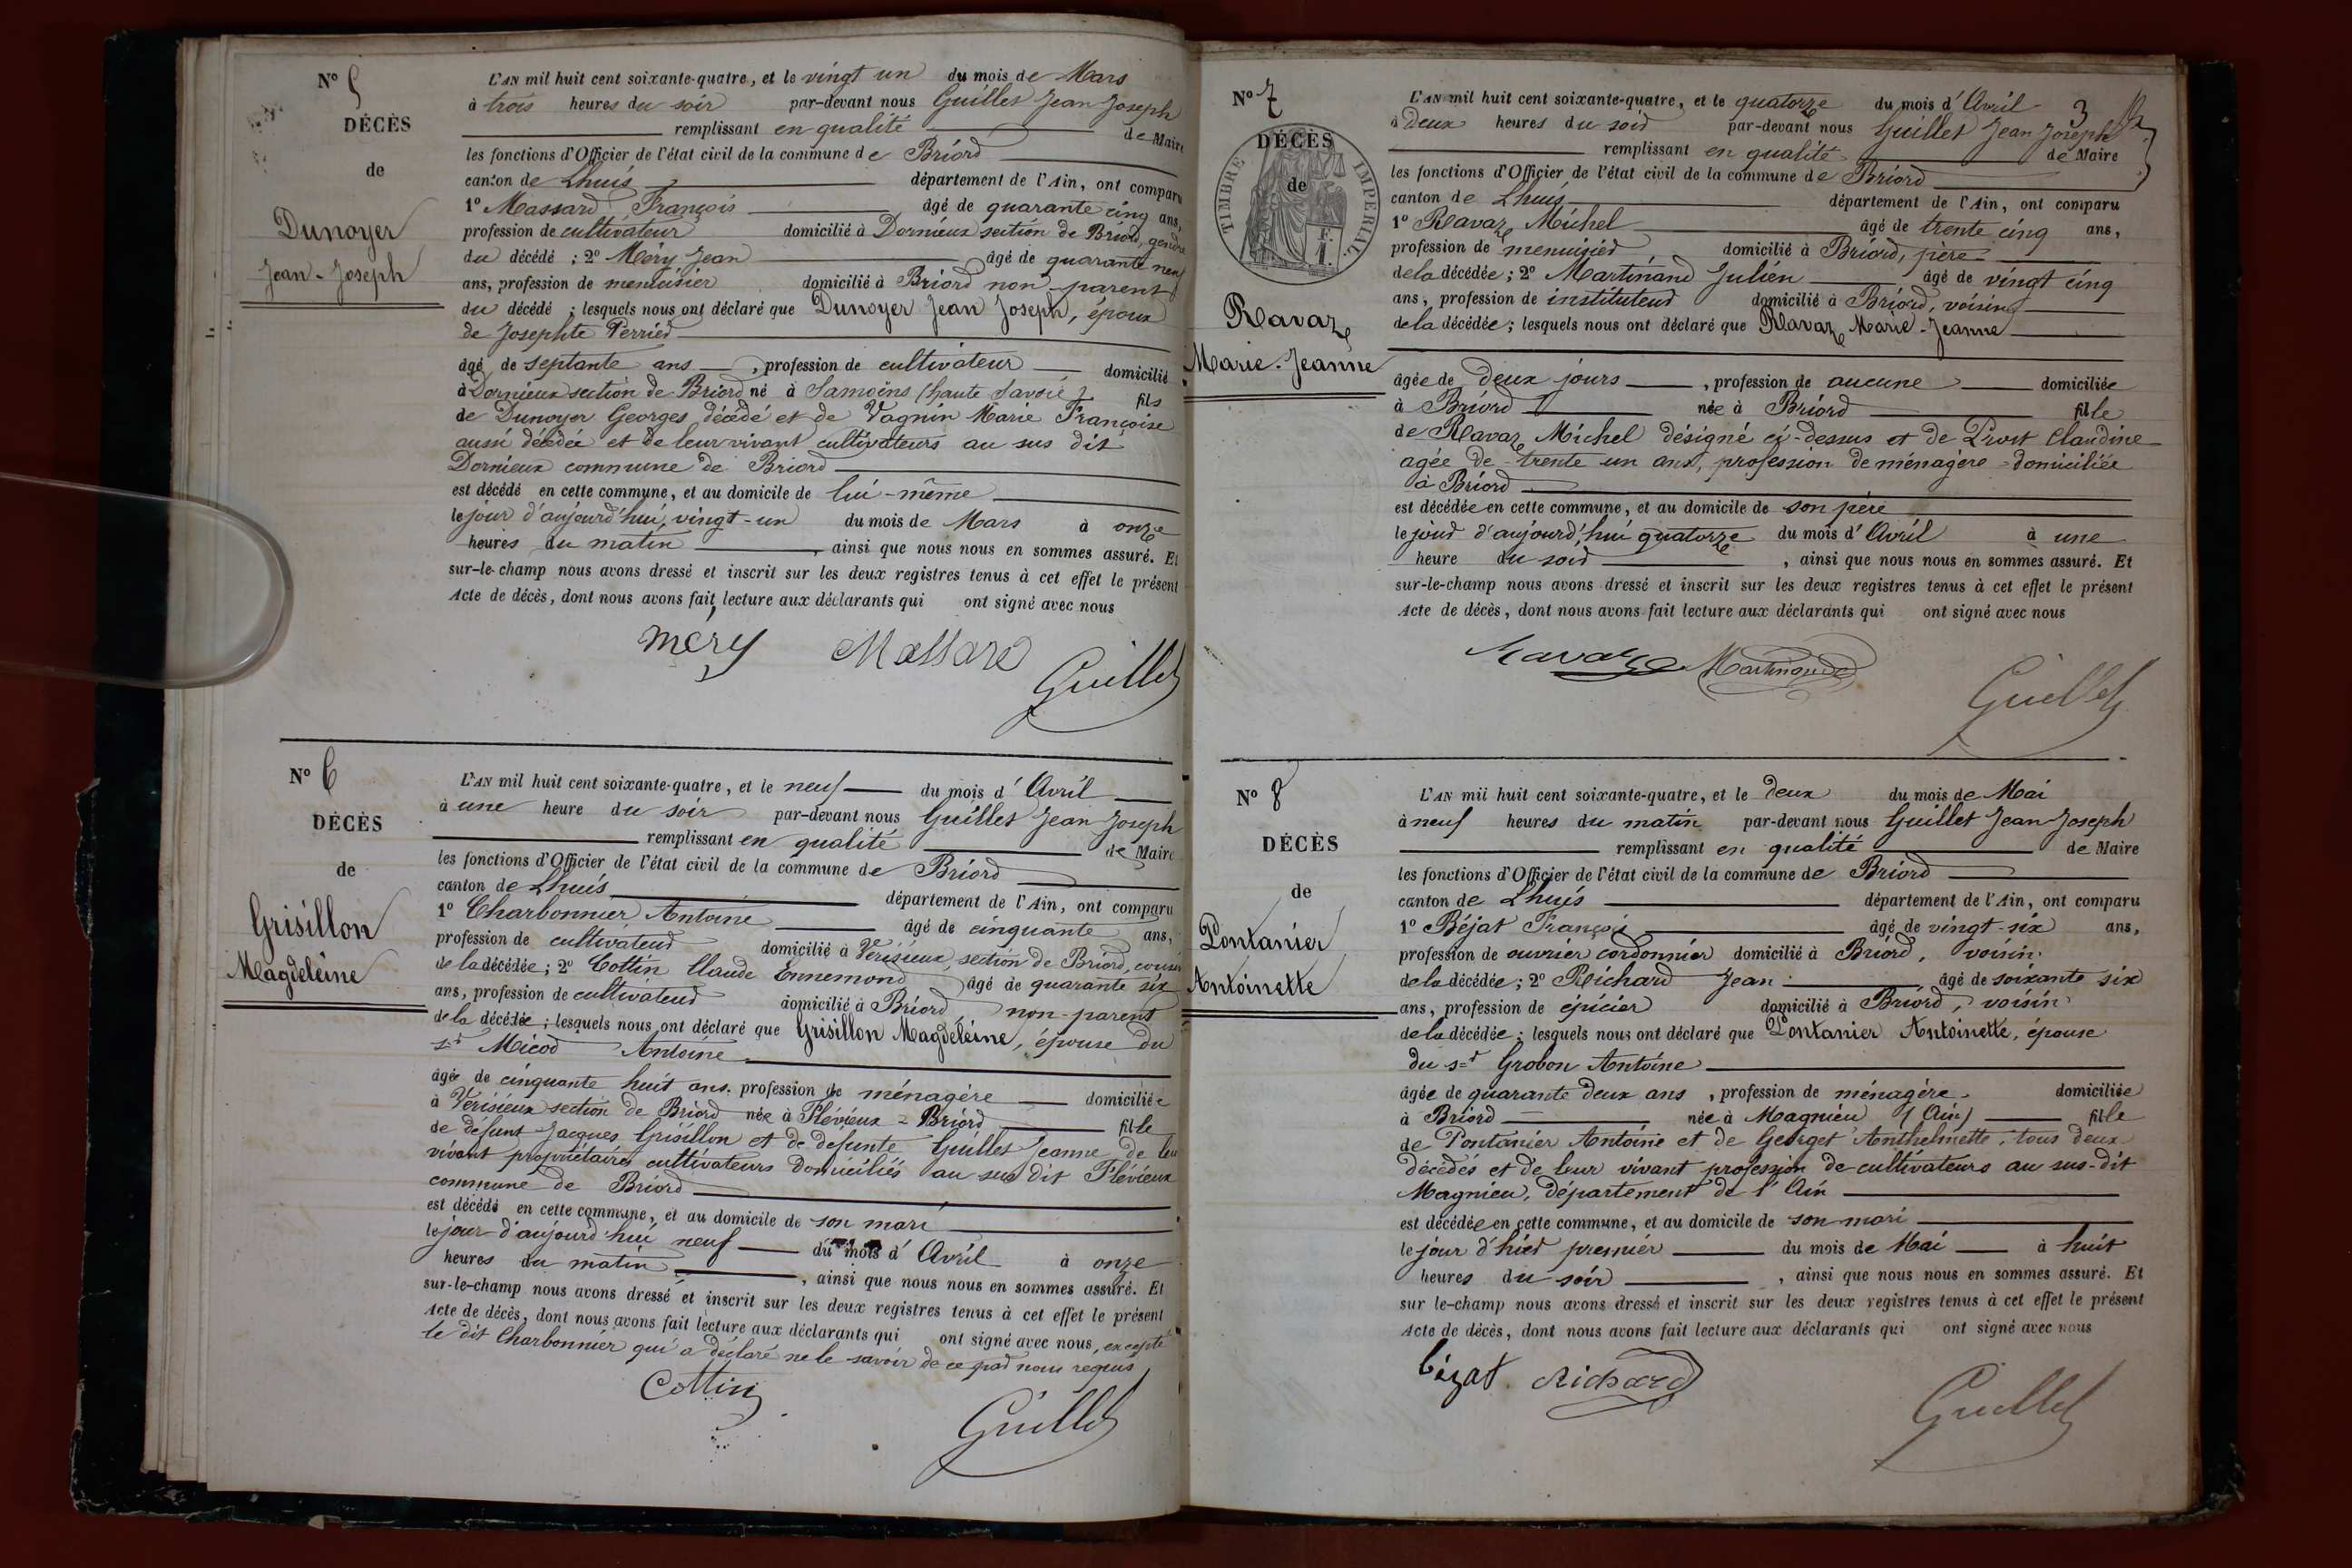 N° 5
DÉCÈS
de
Dunoyer
Jean-Joseph
L'AN mil huit cent soixante-quatre, et le vingt un du mois de Mars
à trois heures du soir par-devant nous Guillet Jean Joseph
remplissant en qualité de Maire
les fonctions d'Officier de l'état civil de la commune de Briord
canton de Lhuis département de l'Ain, ont comparu
1° Massard François âgé de quarante cinq ans,
profession de cultivateur domicilié à Dornieux section de Briord, gendre
du décédé ; 2° Méry Jean âgé de quarante neuf
ans, profession de menuisier domicilié à Briord non-parent
du décédé ; lesquels nous ont déclaré que Dunoyer Jean Joseph, époux
de Josephte Perrier
âgé de septante ans, profession de cultivateur domicilié
à Dornieux section de Briord né à Samoëns (haute Savoie) fils
de Dunoyer Georges décédé et de Vagnin Marie Françoise
aussi décédée et de leur vivant cultivateurs au sus dit
Dornieux commune de Briord
est décédé en cette commune, et au domicile de lui-même
le jour d'aujourd'hui, vingt-un du mois de Mars à onze
heures du matin, ainsi que nous nous en sommes assuré. Et
sur-le-champ nous avons dressé et inscrit sur les deux registres tenus à cet effet le présent
Acte de décès, dont nous avons fait lecture aux déclarants qui ont signé avec nous
mery Massard
Guillet
N° 6
DÉCÈS
de
Grisillon
Magdeleine
L'AN mil huit cent soixante-quatre, et le neuf du mois d'Avril
à une heure du soir par-devant nous Guillet Jean Joseph
remplissant en qualité de Maire
les fonctions d'Officier de l'état civil de la commune de Briord
canton de Lhuis département de l'Ain, ont comparu
1° Charbonnier Antoine âgé de cinquante ans,
profession de cultivateur domicilié à Vérisieux, section de Briord, cousin
de la décédée ; 2° Cottin Claude Ennemond âgé de quarante six
ans, profession de cultivateur domicilié à Briord non-parent
de la décédée ; lesquels nous ont déclaré que Grisillon Magdeleine, épouse du
sr Micod Antoine
âgée de cinquante huit ans. profession de ménagère domiciliée
à Vérisieux section de Briord née à Flévieux = Briord fille
de defunt Jacques Grisillon et de defunte Guillet Jeanne de leur
vivant propriétaires cultivateurs domiciliés au sus dit Flévieux
commune de Briord
est décédé en cette commune, et au domicile de son mari
le jour d'aujourd'hui neuf du mois d'Avril à onze
heures du matin, ainsi que nous nous en sommes assuré. Et
sur-le-champ nous avons dressé et inscrit sur les deux registres tenus à cet effet le présent
Acte de décès, dont nous avons fait lecture aux déclarants qui ont signé avec nous, excepté
le dit Charbonnier qui a déclaré ne le savoir de ce par nous requis
Cottin
Guillet
3
N° 7
DÉCÈS
de
TIMBRE IMPÉRIAL
Ravaz
Marie-Jeanne
L'AN mil huit cent soixante-quatre, et le quatorze du mois d'Avril
à deux heures du soir par-devant nous Guillet Jean Joseph
remplissant en qualité de Maire
les fonctions d'Officier de l'état civil de la commune de Briord
canton de Lhuis département de l'Ain, ont comparu
1° Ravaz Michel âgé de trente cinq ans,
profession de menuisier domicilié à Briord, père
de la décédée ; 2° Martinand Julien âgé de vingt cinq
ans, profession de instituteur domicilié à Briord, voisin
de la décédée ; lesquels nous ont déclaré que Ravaz Marie-Jeanne
âgée de deux jours, profession de aucune domiciliée
à Briord née à Briord fille
de Ravaz Michel désigné ci-dessus et de Prost Claudine
agée de trente un ans, profession de ménagère domiciliée
à Briord
est décédée en cette commune, et au domicile de son père
le jour d'aujourd'hui quatorze du mois d'Avril à une
heure du soir, ainsi que nous nous en sommes assuré. Et
sur-le-champ nous avons dressé et inscrit sur les deux registres tenus à cet effet le présent
Acte de décès, dont nous avons fait lecture aux déclarants qui ont signé avec nous
Ravaz Martinand
Guillet
N° 8
DÉCÈS
de
Pontanier
Antoinette
L'AN mil huit cent soixante-quatre, et le deux du mois de Mai
à neuf heures du matin par-devant nous Guillet Jean Joseph
remplissant en qualité de Maire
les fonctions d'Officier de l'état civil de la commune de Briord
canton de Lhuis département de l'Ain, ont comparu
1° Béjat François âgé de vingt-six ans,
profession de ouvrier cordonnier domicilié à Briord, voisin
de la décédée ; 2° Richard Jean âgé de soixante six
ans, profession de épicier domicilié à Briord, voisin
de la décédée ; lesquels nous ont déclaré que Pontanier Antoinette, épouse
du sr Grobon Antoine
âgée de quarante deux ans, profession de ménagère domiciliée
à Briord née à Magnieu (Ain) fille
de Pontanier Antoine et de Georget Anthelmette, tous deux
décédés et de leur vivant profession de cultivateurs au sus-dit
Magnieu, département de l'Ain
est décédée en cette commune, et au domicile de son mari
le jour d'hier premier du mois de Mai à huit
heures du soir, ainsi que nous nous en sommes assuré. Et
sur le-champ nous avons dressé et inscrit sur les deux registres tenus à cet effet le présent
Acte de décès, dont nous avons fait lecture aux déclarants qui ont signé avec nous
béjat Richard
Guillet